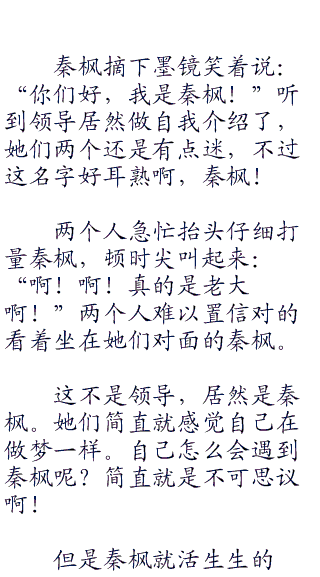 秦枫摘下墨镜笑着说：
“你们好，我是秦枫！”听
到领导居然做自我介绍了，
她们两个还是有点迷，不过
这名字好耳熟啊，秦枫！
两个人急忙抬头仔细打
量秦枫，顿时尖叫起来：
“啊！啊！真的是老大
啊！”两个人难以置信对的
看着坐在她们对面的秦枫。
这不是领导，居然是秦
枫。她们简直就感觉自己在
做梦一样。自己怎么会遇到
秦枫呢？简直就是不可思议
啊！
但是秦枫就活生生的